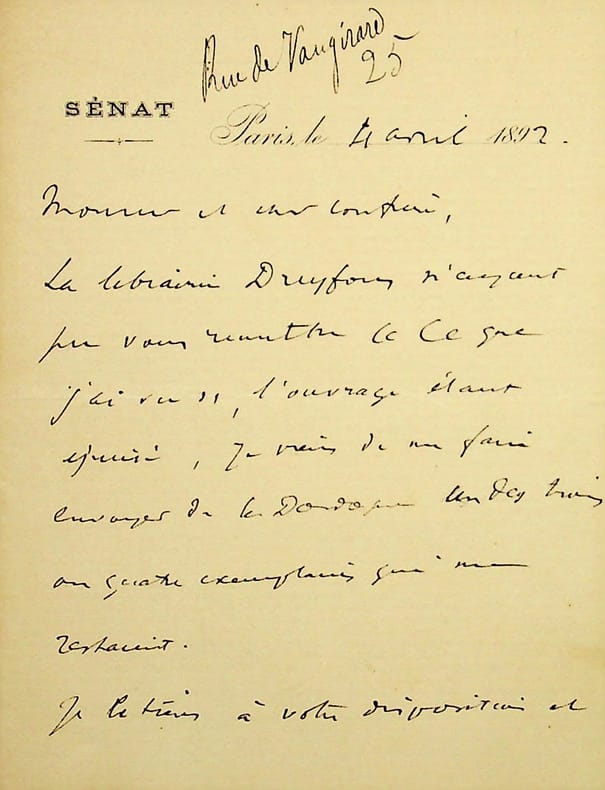 Rue de Vaugirard
25
SÉNAT
Paris, le 4 avril 1892.
Monsieur et cher confrère,
La librairie Dreyfous n'ayant
pu vous remettre le Ce que
j'ai vu, l'ouvrage étant
épuisé, je viens de me faire
envoyer de la Dordogne un des trois
ou quatre exemplaires qui me
restaient.
Je le tiens à votre disposition et